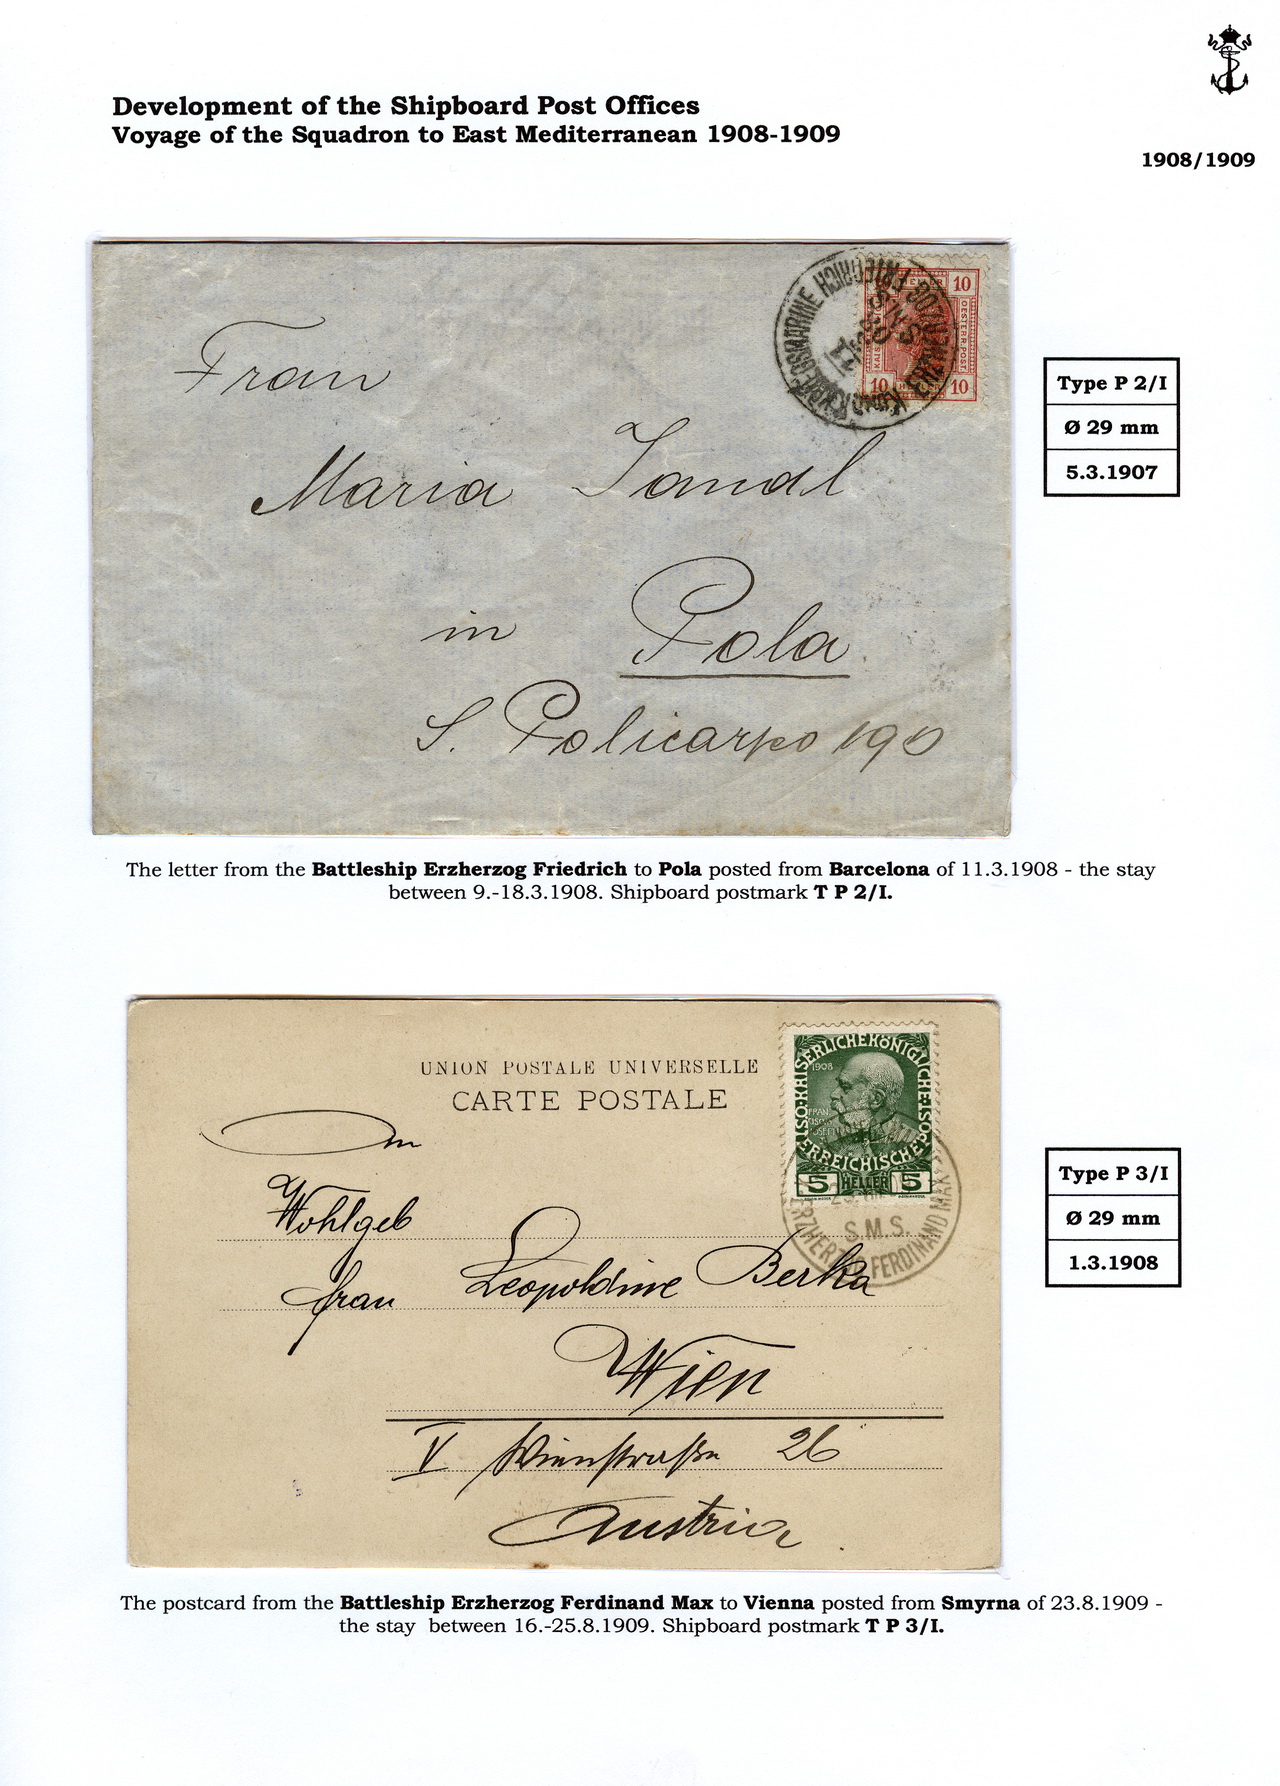 Development of the Shipboard Post Offices
Voyage of the Squadron to East Mediterranean 1908-1909
1908/1909
10
OESTERR. POST
10
10
HELLER
KRIEGSMARINE
FRIEDRICH
Type P 2/I
Ø 29 mm
5.3.1907
Frau
Maria
in
Pola
S. Policarpo 190
The letter from the Battleship Erzherzog Friedrich to Pola posted from Barcelona of 11.3.1908 - the stay
between 9.-18.3.1908. Shipboard postmark T P 2/I.
UNION POSTALE UNIVERSELLE
CARTE POSTALE
1908
5 HELLER 5
S.M.S.
ERZHERZOG FERDINAND MAX
An
Wohlgeb
Frau Leopoldine Berka
Wien
V Wienstraße 26
Austria
Type P 3/I
Ø 29 mm
1.3.1908
The postcard from the Battleship Erzherzog Ferdinand Max to Vienna posted from Smyrna of 23.8.1909 -
the stay between 16.-25.8.1909. Shipboard postmark T P 3/I.